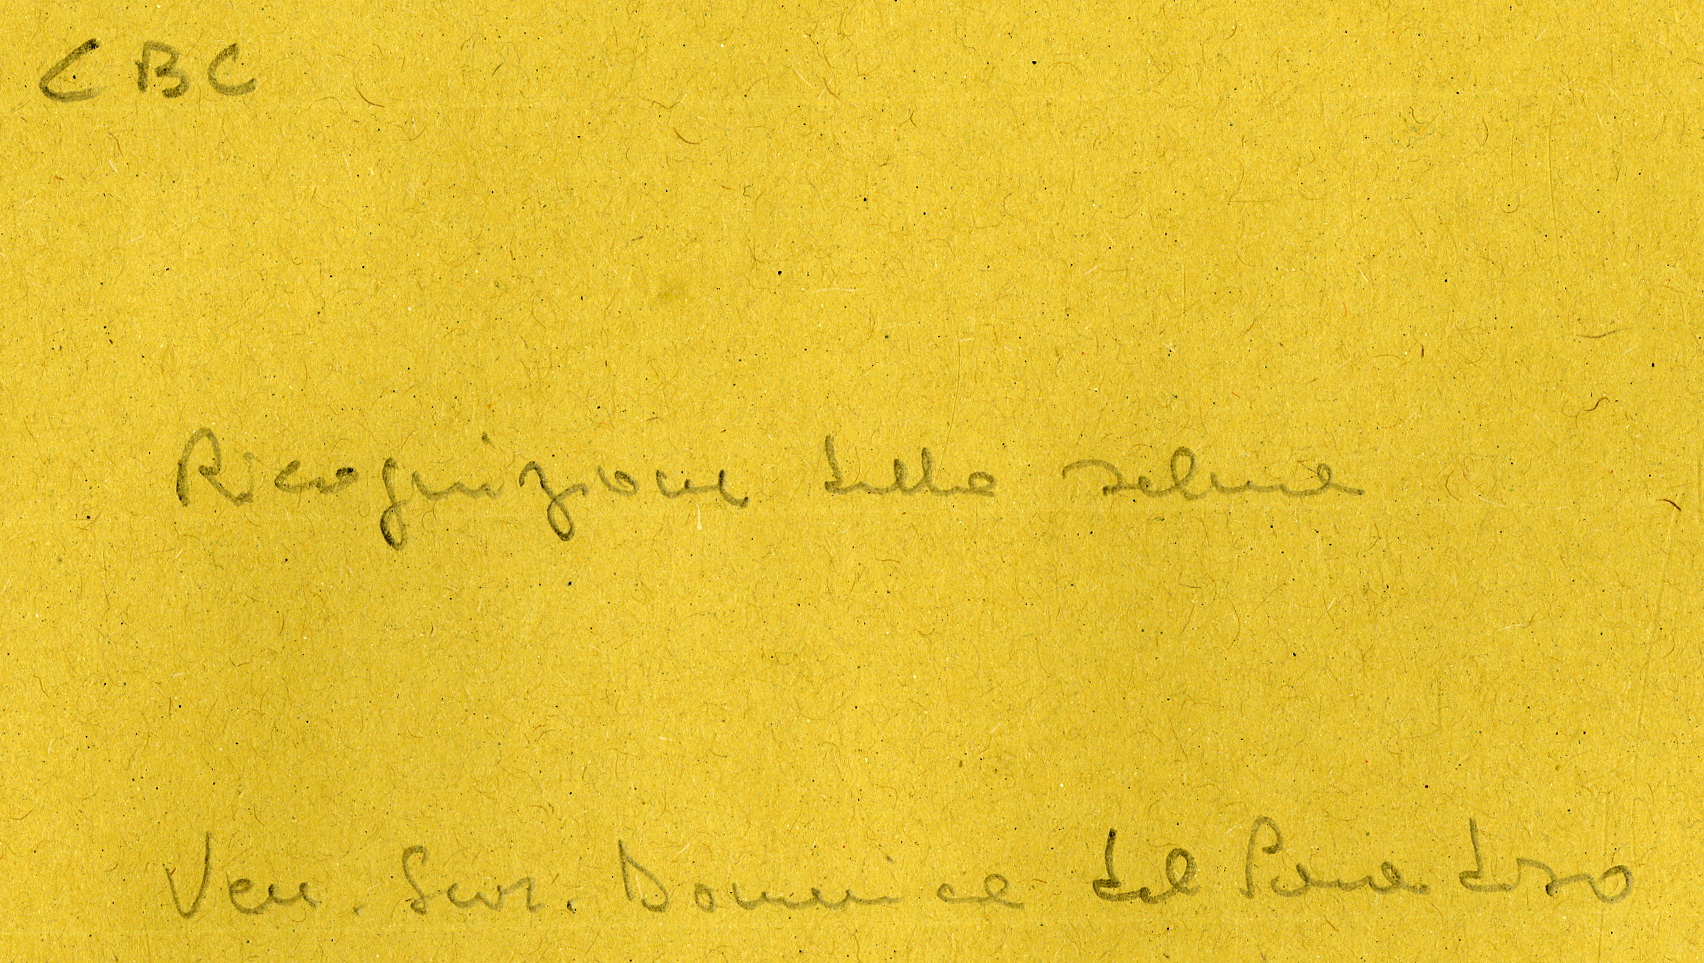 CBC
Ricognizione della salma
Ven. Suor. Domenica del Paradiso